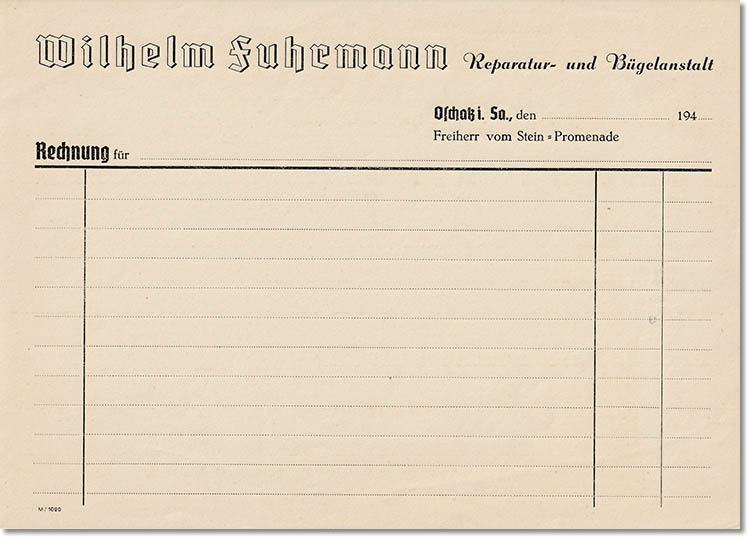 Wilhelm Fuhrmann Reparatur- und Bügelanstalt
Oschatz i. Sa., den 194
Freiherr vom Stein=Promenade
Rechnung für
M/1020